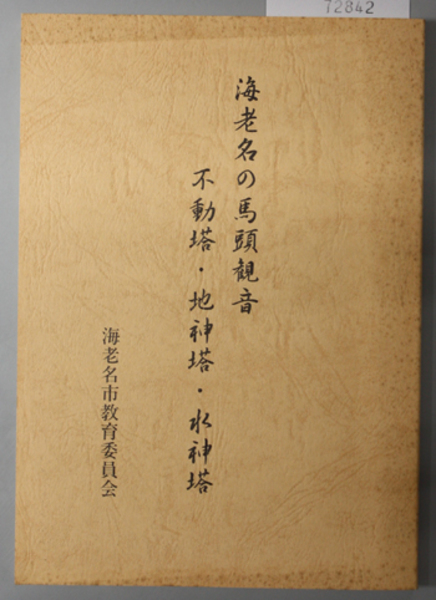 72842
海老名の馬頭観音
不動塔・地神塔・水神塔
海老名市教育委員会